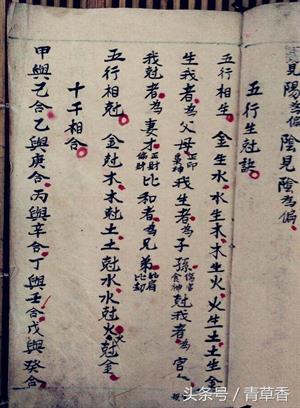 見陽為偏 陰見陰為偏
五行生尅訣
五行相生 金生水 水生木木生火火生土土生金
生我者為父母 正印 梟神 我生者為子孫 傷官 食神 尅我者為官
我尅者為妻才 正財 偏財 比和者為兄弟 比肩 比劫
五行相尅 金尅木木尅土土尅水水尅火火尅金
十干相合
甲與己合乙與庚合丙與辛合丁與壬合戊與癸合
头条号 / 青草香